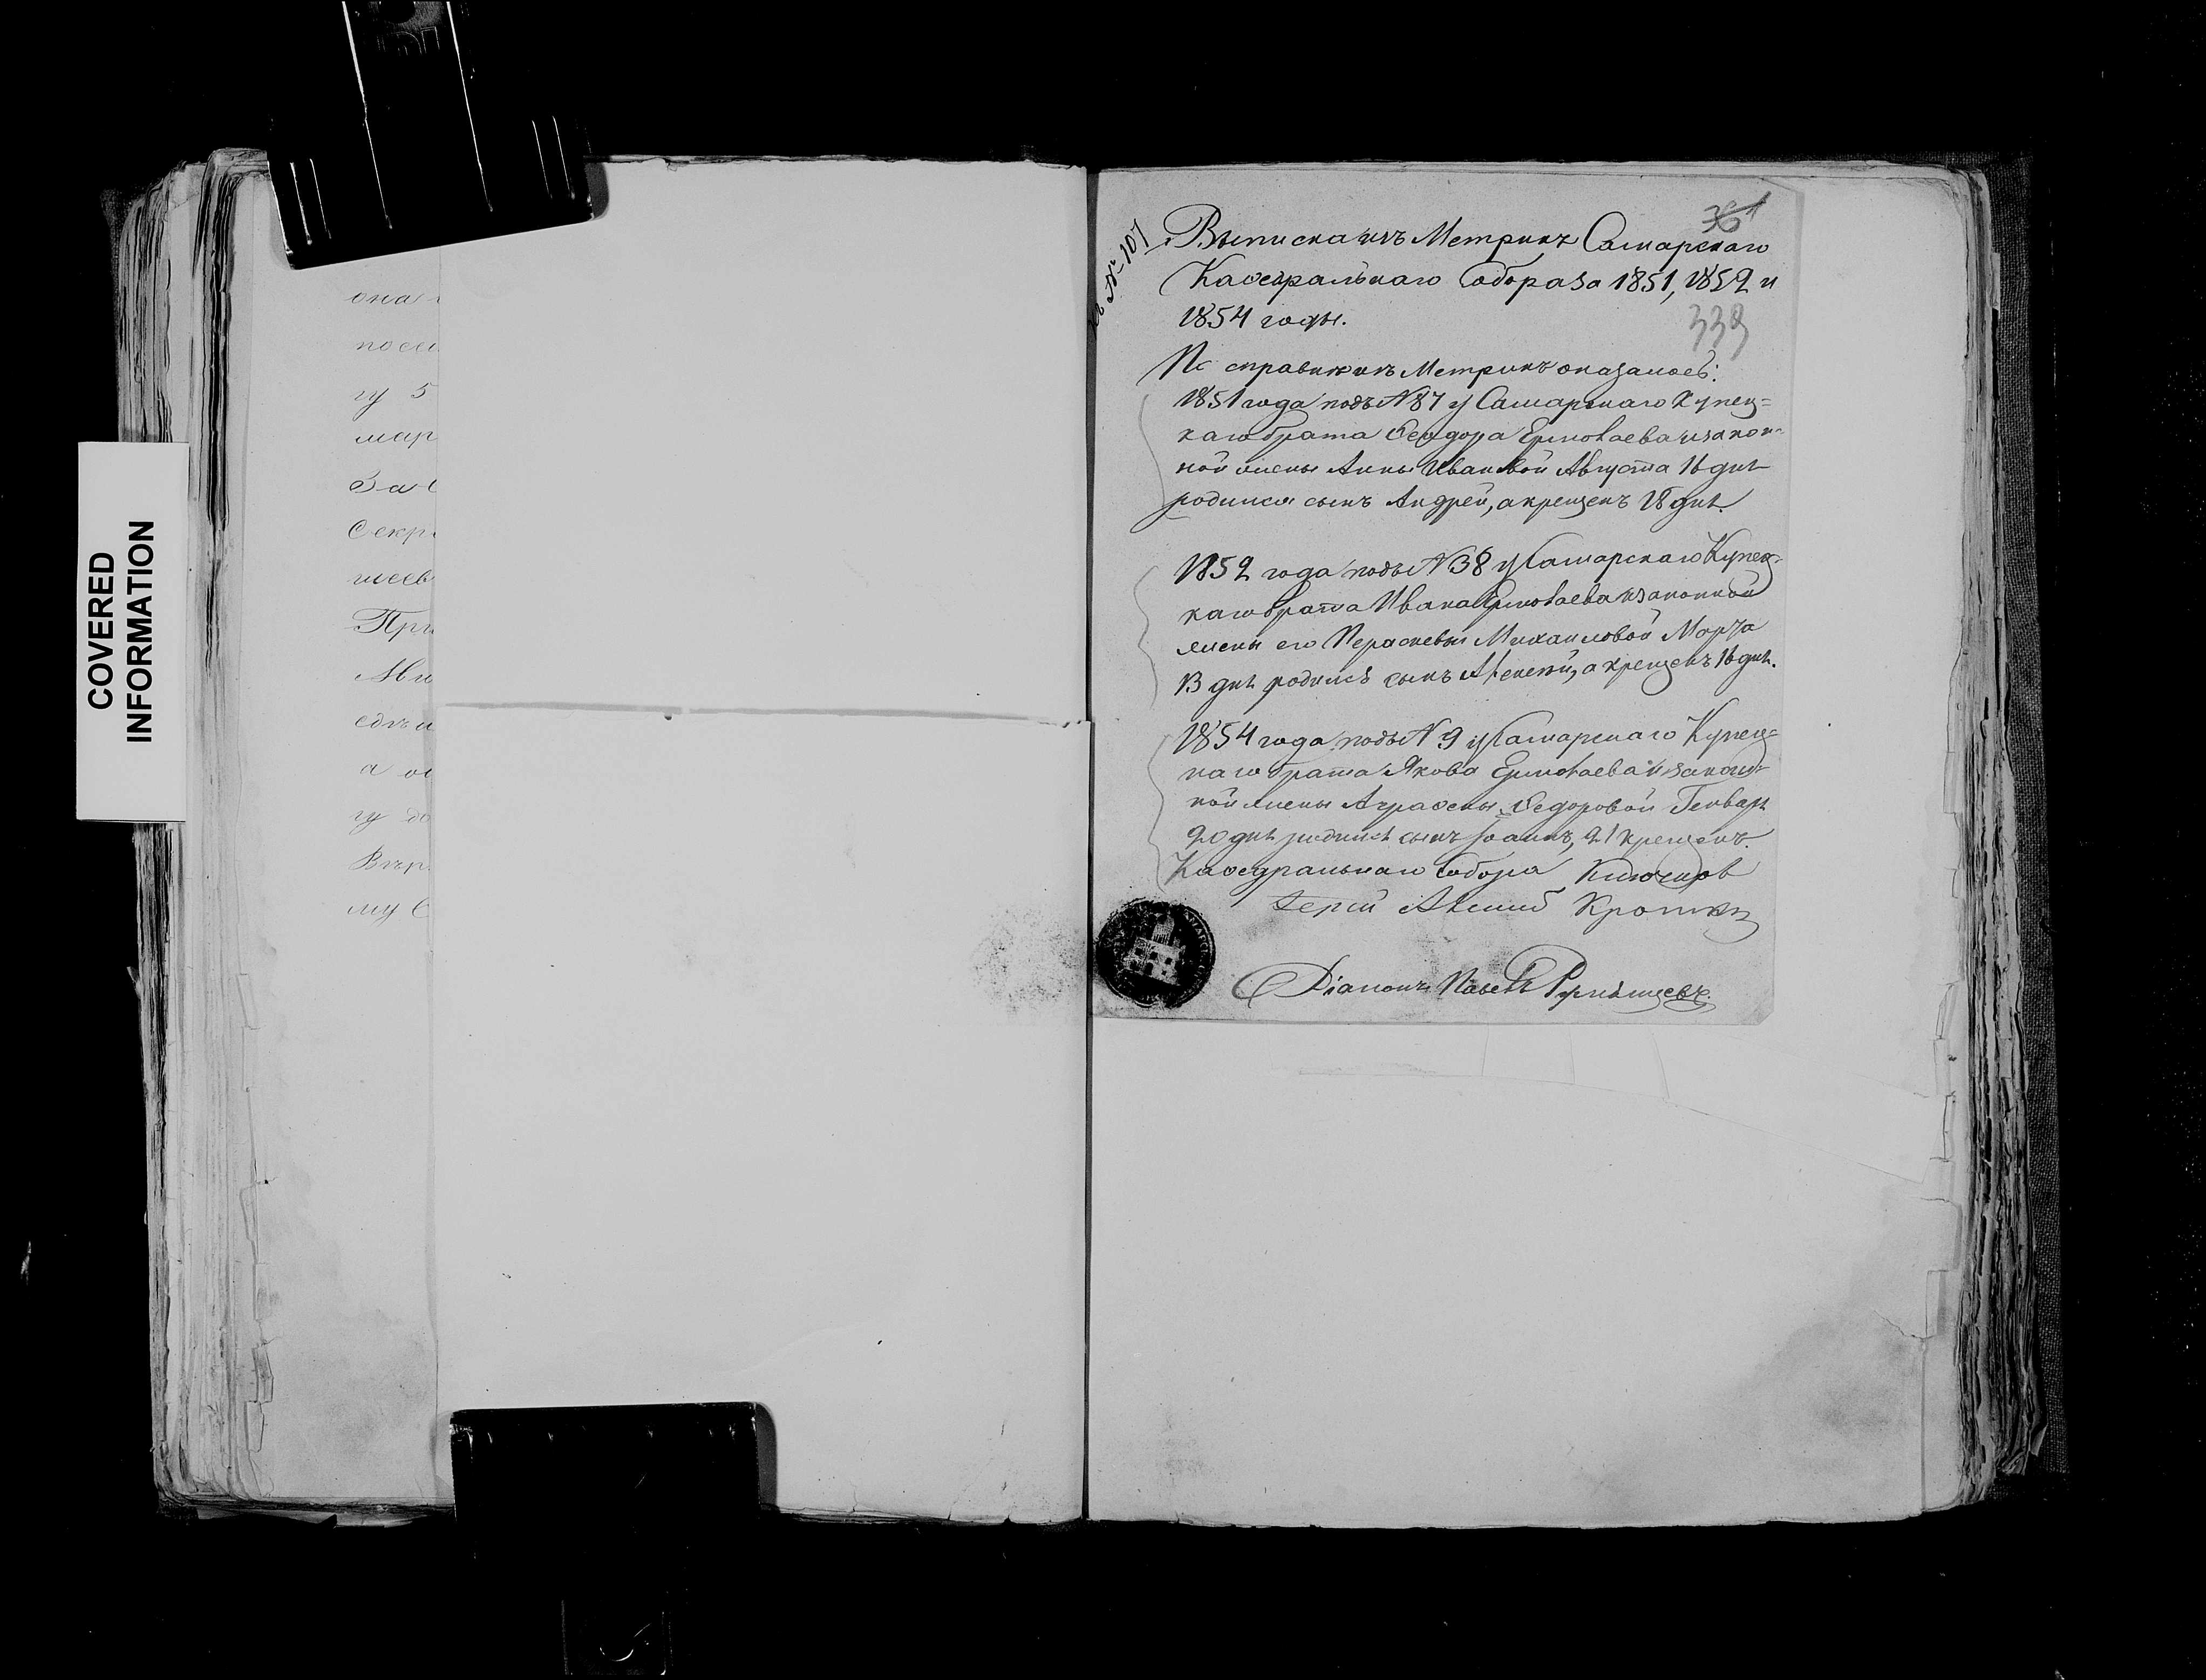 COVERED
INFORMATION
она
посл
гу 5
мар
За
Секр
шеев
При
Ми
едъи
а
гу до
Вѣр
му С
№ 107
361
Выписка изъ Метрикъ Самарскаго
Каѳедральнаго Собора за 1851, 1852 и
1854 годы.
339
По справкѣ изъ Метрикъ оказалось:
1851 года подъ № 87 у Самарскаго Купец=
каго брата Ѳеодора Ермолаева и закон=
ной жены Анны Ивановой Августа 16 дня
родился сынъ Андрей, а крещенъ 18 дня.
1852 года подъ № 38 у Самарскаго Купец=
каго брата Ивана Ермолаева и законной
жены его Параскевы Михаиловой Марта
13 дня родился сынъ Алексѣй, а крещенъ 16 дня.
1854 года подъ № 9 у Самарскаго Купец=
каго брата Якова Ермолаева и закон=
ной жены Аграфены Ѳедоровой Генваря
20 дня родился сынъ Іоаннъ, 21 крещенъ.
Каѳедральнаго Собора Ключарь
Іерей
Діаконъ Павелъ Румянцевъ.